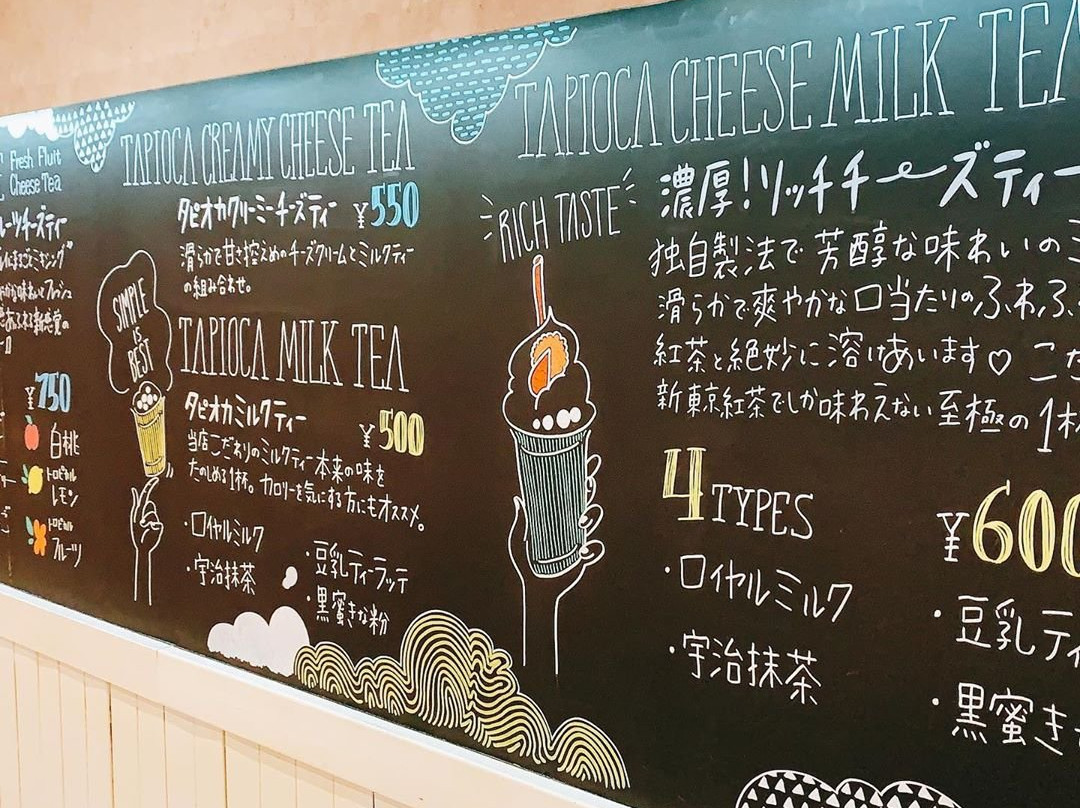 Fresh Fluit
Cheese Tea
ルーツチーズティー
¥750
白桃
トロピカル
レモン
トロピカル
フルーツ
TAPIOCA CREAMY CHEESE TEA
タピオカクリーミーチーズティ ¥550
滑らかで甘さ控えめのチーズクリームとミルクティー
の組み合わせ。
SIMPLE
IS
BEST
TAPIOCA MILK TEA
タピオカミルクティー ¥500
当店こだわりのミルクティー本来の味を
たのしめる1杯。カロリーを気にする方にもオススメ。
・ロイヤルミルク
・宇治抹茶
・豆乳ティーラッテ
・黒蜜きな粉
TAPIOCA CHEESE MILK TEA
RICH TASTE
濃厚!リッチチーズティー
独自製法で芳醇な味わいの
滑らかで爽やかな口当たりのふわふ
紅茶と絶妙に溶けあいます♡
新東京紅茶でしか味わえない至極の1杯
4 TYPES
¥600
・ロイヤルミルク
・宇治抹茶
・豆乳ティ
・黒蜜き